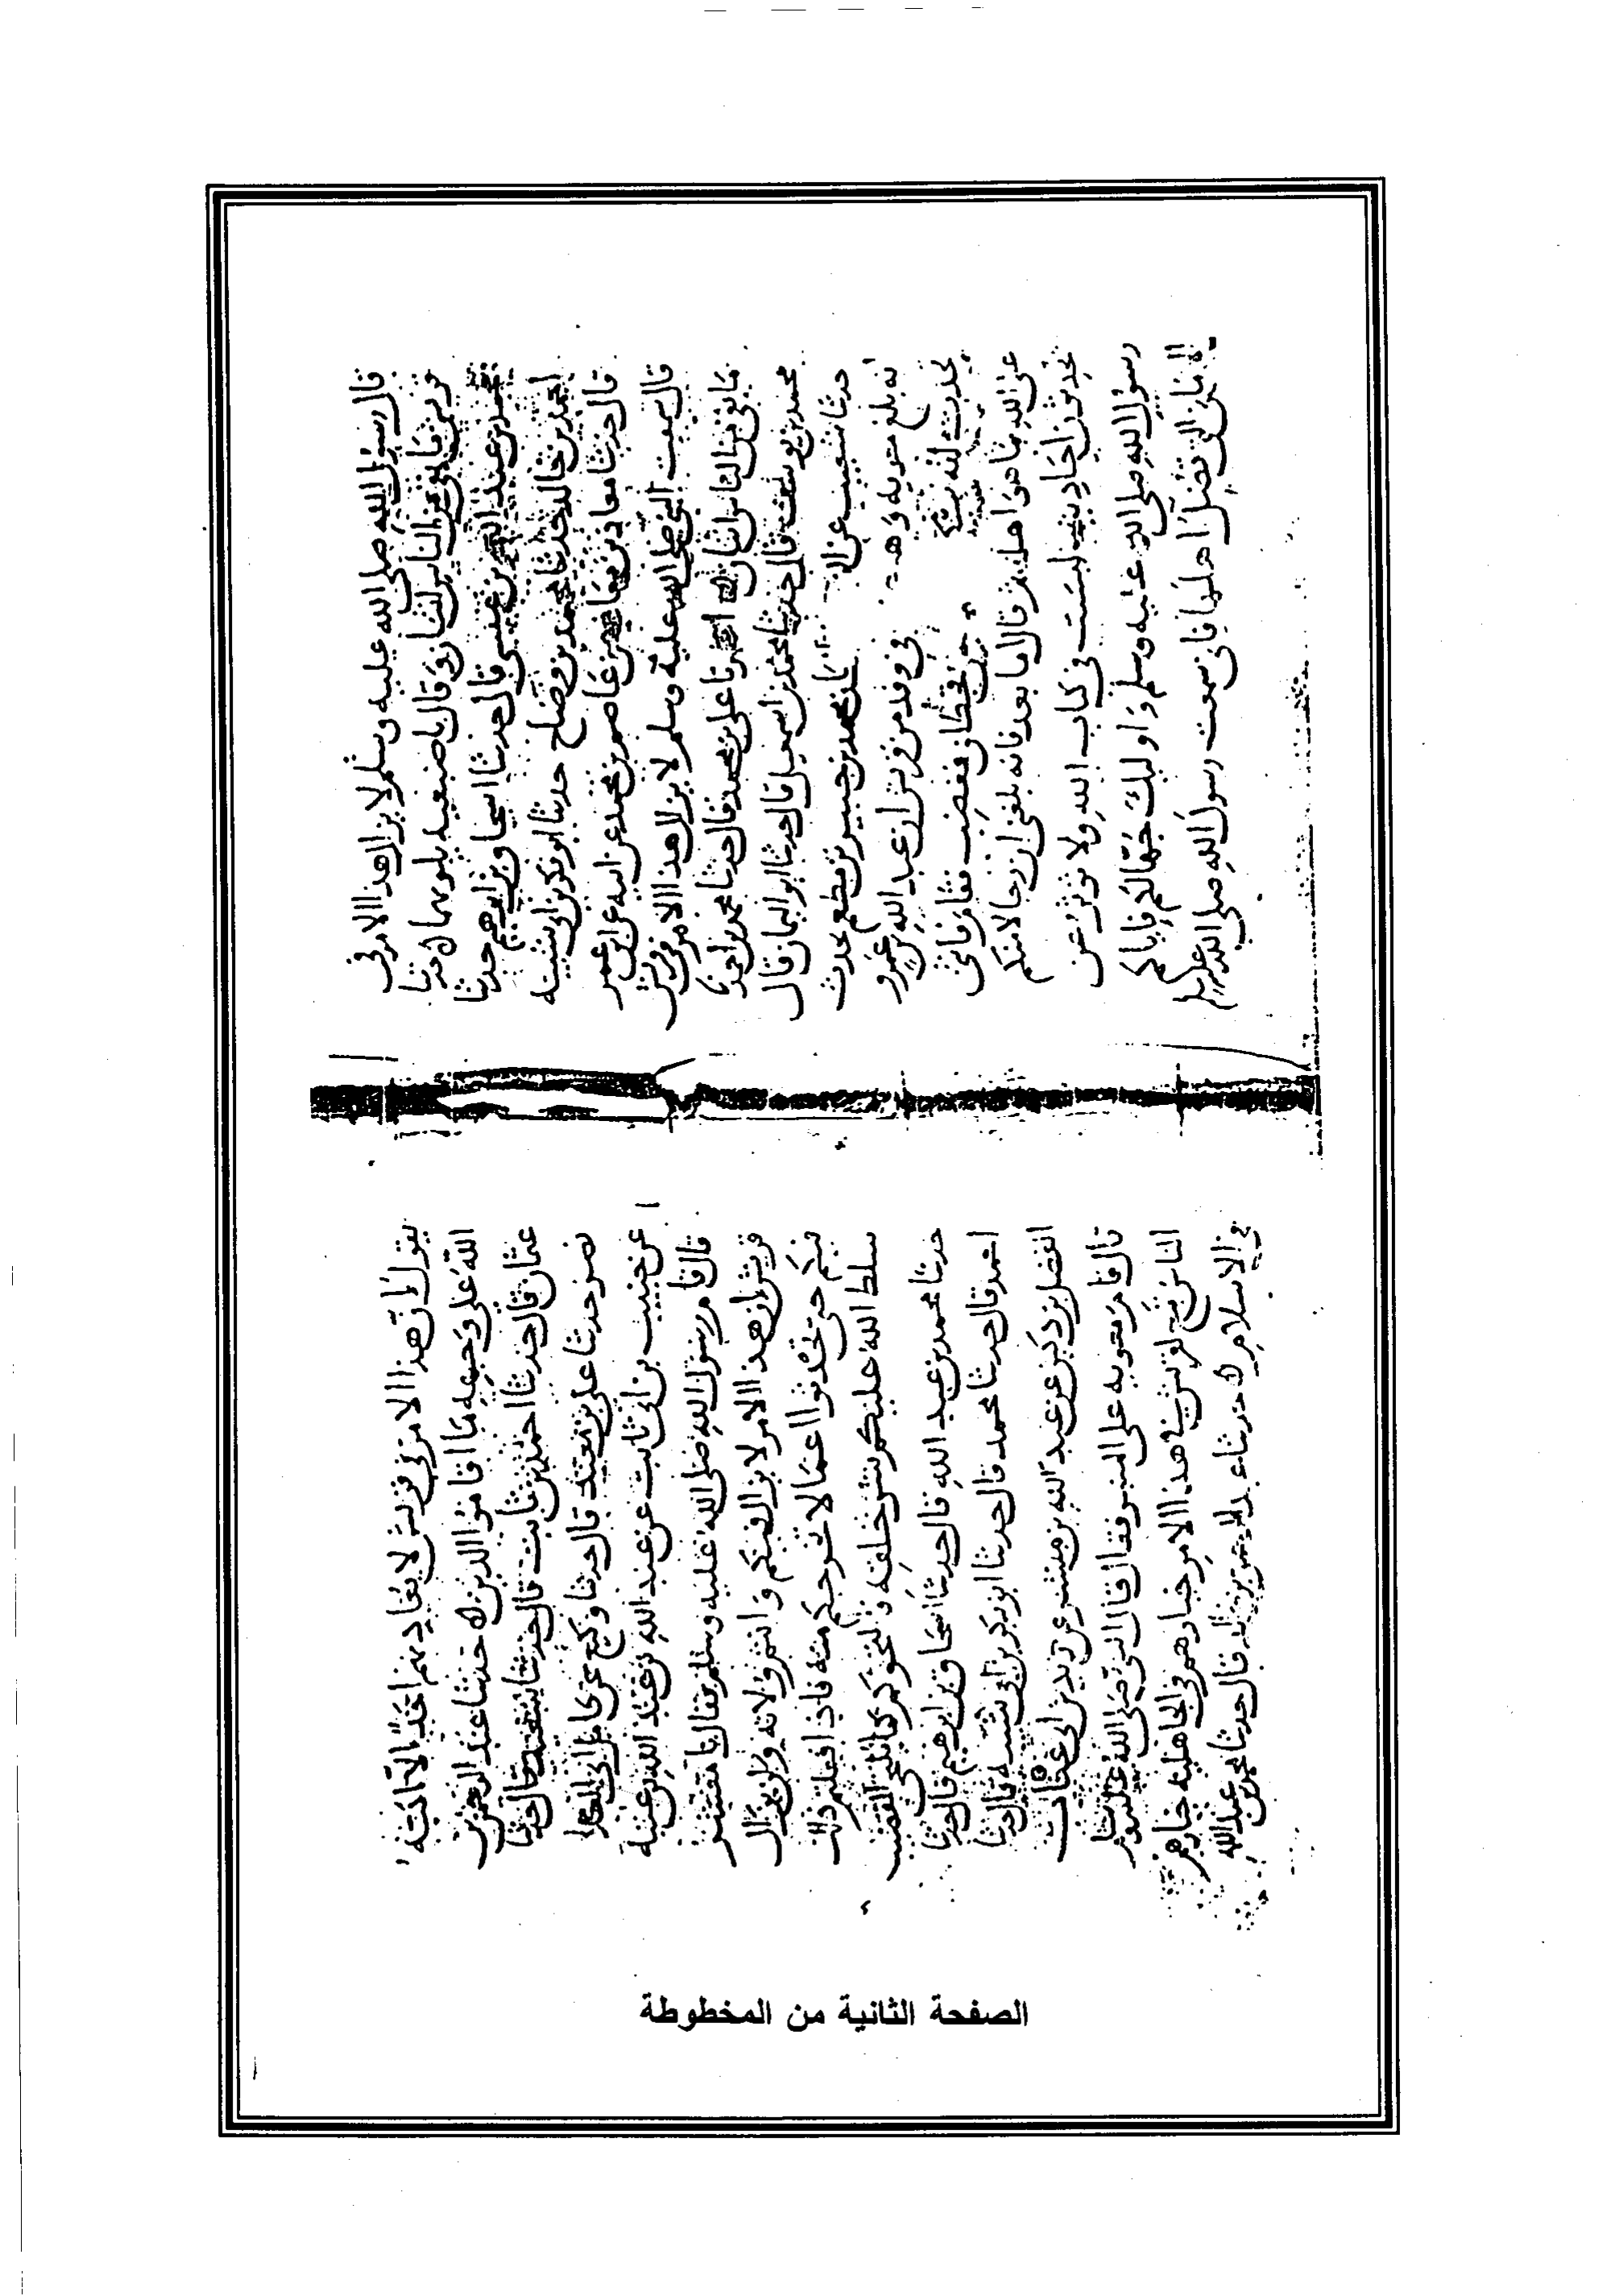 قال رسول الله صلى الله عليه وسلم لا يزال هذا الامر في
قريش ما بقي من الناس اثنان وقال باصبعيه يلويهما حدثنا
محمد بن عبد الله بن عيسى قال حدثنا اسحاق بن ابرهيم حدثنا
احمد بن خالد حدثنا محمد بن وضاح حدثنا ابو بكر بن ابي شيبة
قال حدثنا معاذ بن معاذ عن عاصم بن محمد عن ابيه عن ابن عمر
قال سمعت النبي صلى الله عليه وسلم لا يزال هذا الامر في قريش
ما بقي من الناس اثنان اخبرنا علي بن محمد قال حدثنا محمد بن احمد
محمد بن يوسف قال حدثنا محمد بن اسمعيل قال حدثنا ابو اليمان قال
حدثنا شعيب عن الز كان محمد بن جبير بن مطعم يحدث
انه بلغ معوية وهـ في وفد من قريش ان عبد الله بن عمرو
يحدث انه سيكون من قحطان فغضب فقام فاثنى
على الله بما هو اهله ثم قال اما بعد فانه بلغني ان رجالا منكم
يحدثون احاديث ليست في كتاب الله ولا تؤثر عن
رسول الله صلى الله عليه وسلم واوليك جهالكم فاياكم
والاماني التي تضل اهلها فاني سمعت رسول الله صلى الله عليه وسلم
يقول ان هذا الامر في قريش لا يعاديهم احد الا اكبه
الله على وجهه ما اقاموا الدين حدثنا عبد الرحمن بن
عثمان قال حدثنا احمد بن ثابت قال حدثنا سعيد قال حدثنا
نصر حدثنا علي بن معبد قال حدثنا وكيع عن كامل ابي العلا
عن حبيب بن ابي ثابت عن عبد الله بن عبد الله بن عتبة
قال قام رسول الله صلى الله عليه وسلم فقال يا معشر
قريش ان هذا الامر لا يزال فيكم وانتم ولاته ولن يزال
فيكم حتى تحدثوا اعمالا تخرجكم منه فاذا فعلتم ذلك
سلط الله عليكم شر خلقه فالتحوكم كما يلتحى القضيب
حدثنا محمد بن عبد الله قال حدثنا اسحاق بن ابرهيم قال حدثنا
احمد قال حدثنا محمد قال حدثنا ابو بكر بن ابي شيبه قال حدثنا
الفضل بن دكين عن عبد الله بن مبشر عن زيد بن ابي عتاب
قال قام معويه على المنبر فقال قال النبي صلى الله عليه وسلم
الناس تبع لقريش في هذا الامر خيارهم في الجاهلية خيارهم
في الاسلام حدثنا عبد الرحمن بن قال حدثنا محمد بن عبد الله
الصفحة الثانية من المخطوطة